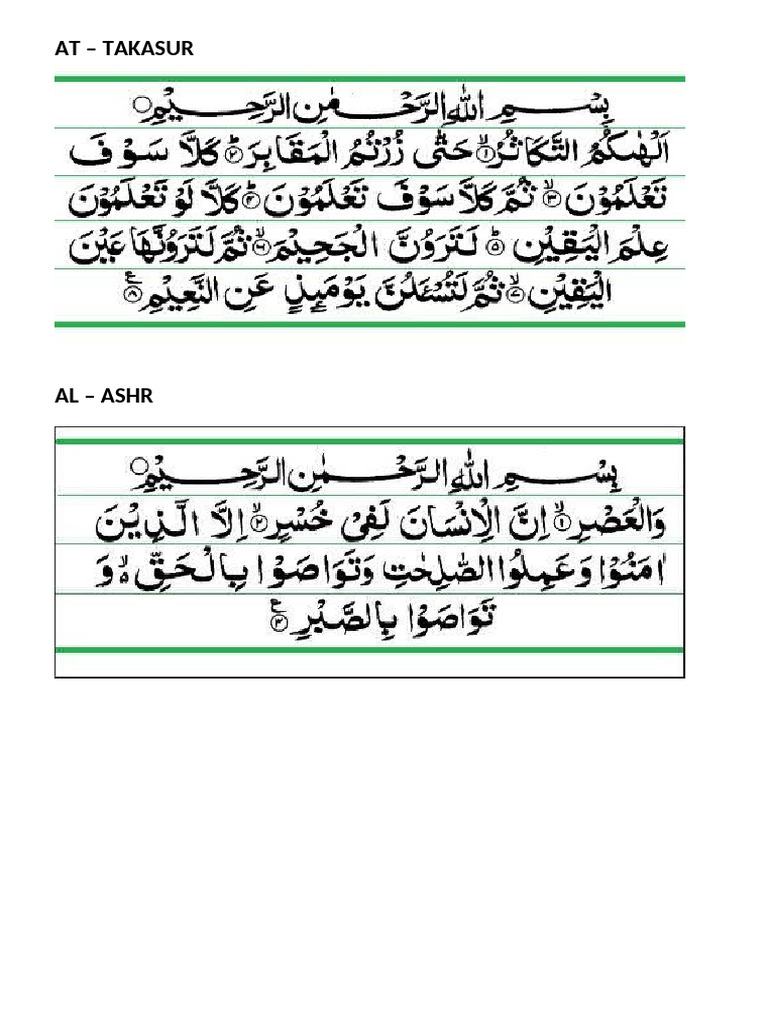 AT – TAKASUR
بِسْمِ اللّٰهِ الرَّحْمٰنِ الرَّحِيْمِ ○
اَلْهٰىكُمُ التَّكَاثُرُ ۙ﴿۱﴾ حَتّٰى زُرْتُمُ الْمَقَابِرَ ؕ﴿۲﴾ كَلَّا سَوْفَ
تَعْلَمُوْنَ ۙ﴿۳﴾ ثُمَّ كَلَّا سَوْفَ تَعْلَمُوْنَ ؕ﴿۴﴾ كَلَّا لَوْ تَعْلَمُوْنَ
عِلْمَ الْيَقِيْنِ ؕ﴿۵﴾ لَتَرَوُنَّ الْجَحِيْمَ ۙ﴿۶﴾ ثُمَّ لَتَرَوُنَّهَا عَيْنَ
الْيَقِيْنِ ۙ﴿۷﴾ ثُمَّ لَتُسْـَٔلُنَّ يَوْمَىِٕذٍ عَنِ النَّعِيْمِ ﴿۸﴾ ع
AL – ASHR
بِسْمِ اللّٰهِ الرَّحْمٰنِ الرَّحِيْمِ ○
وَالْعَصْرِ ۙ﴿۱﴾ اِنَّ الْاِنْسَانَ لَفِيْ خُسْرٍ ۙ﴿۲﴾ اِلَّا الَّذِيْنَ
اٰمَنُوْا وَعَمِلُوا الصّٰلِحٰتِ وَتَوَاصَوْا بِالْحَقِّ ۙ۬ وَ
تَوَاصَوْا بِالصَّبْرِ ﴿۳﴾ ع